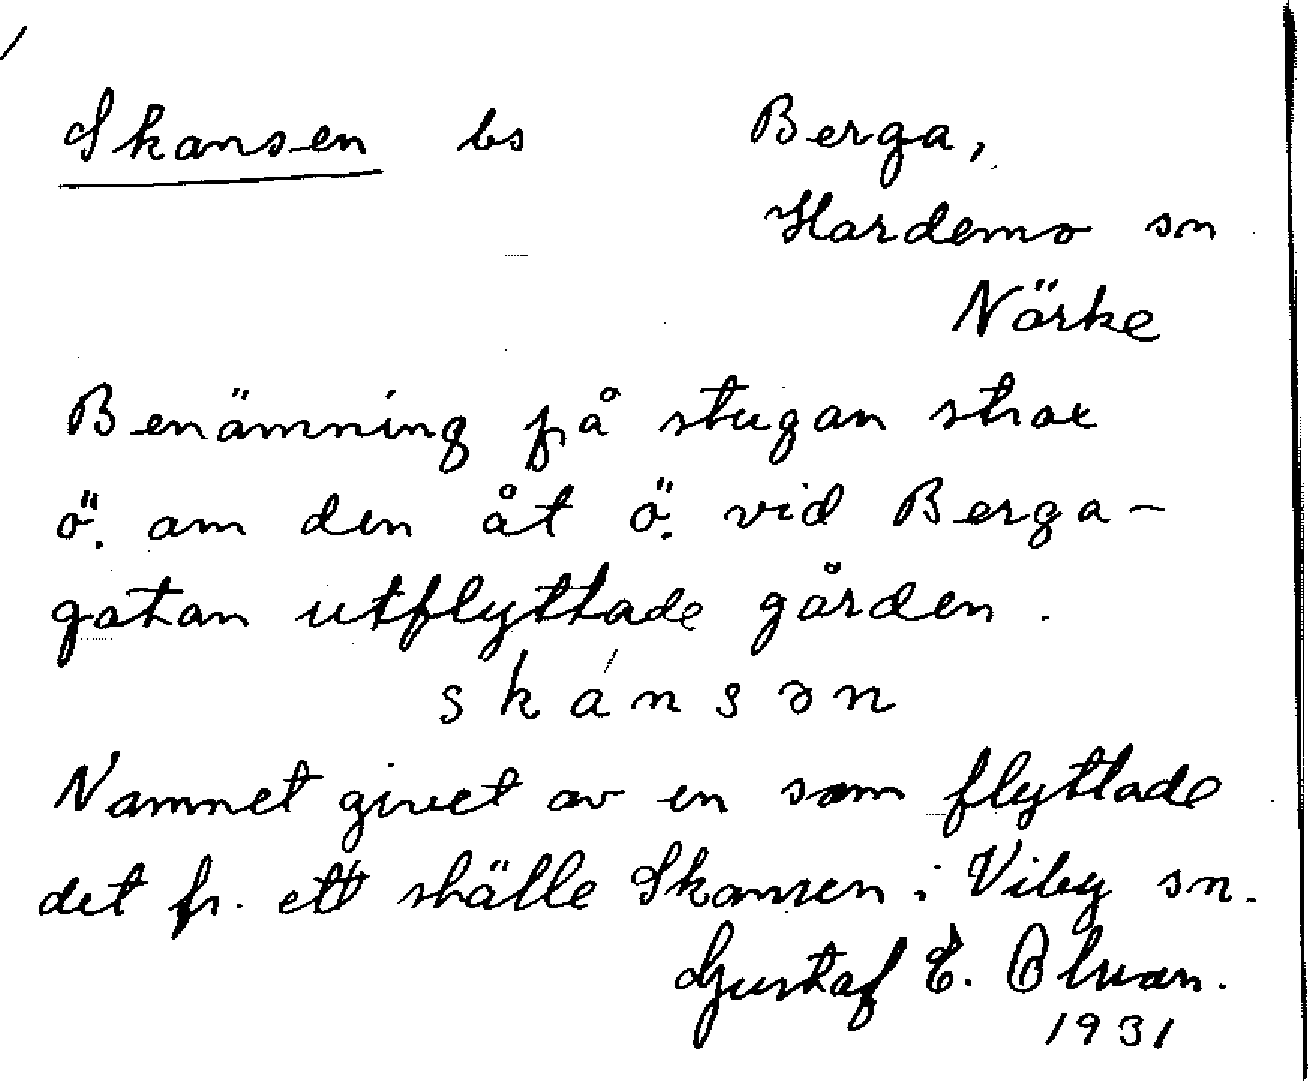 Skansen bs Berga,
Hardemo sn
Närke
Benämning på stugan strax
ö. om den åt ö. vid Berga-
gatan utflyttade gården.
skánsən
Namnet givet av en som flyttade
det fr. ett ställe Skansen i Viby sn.
Gustaf E.
1931